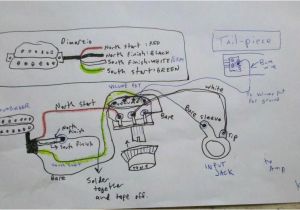 Dimarzio
North Start : RED
North Finish : BLACK
South Finish : WHITE
South Start : GREEN
Tail-piece
Bare wire
To volume pot for ground
Volume Pot
North Start
North Finish
South Finish
Bare
Bare
white
Bare sleeve
Tip
INPUT JACK
To Amp
Solder together and tape off.